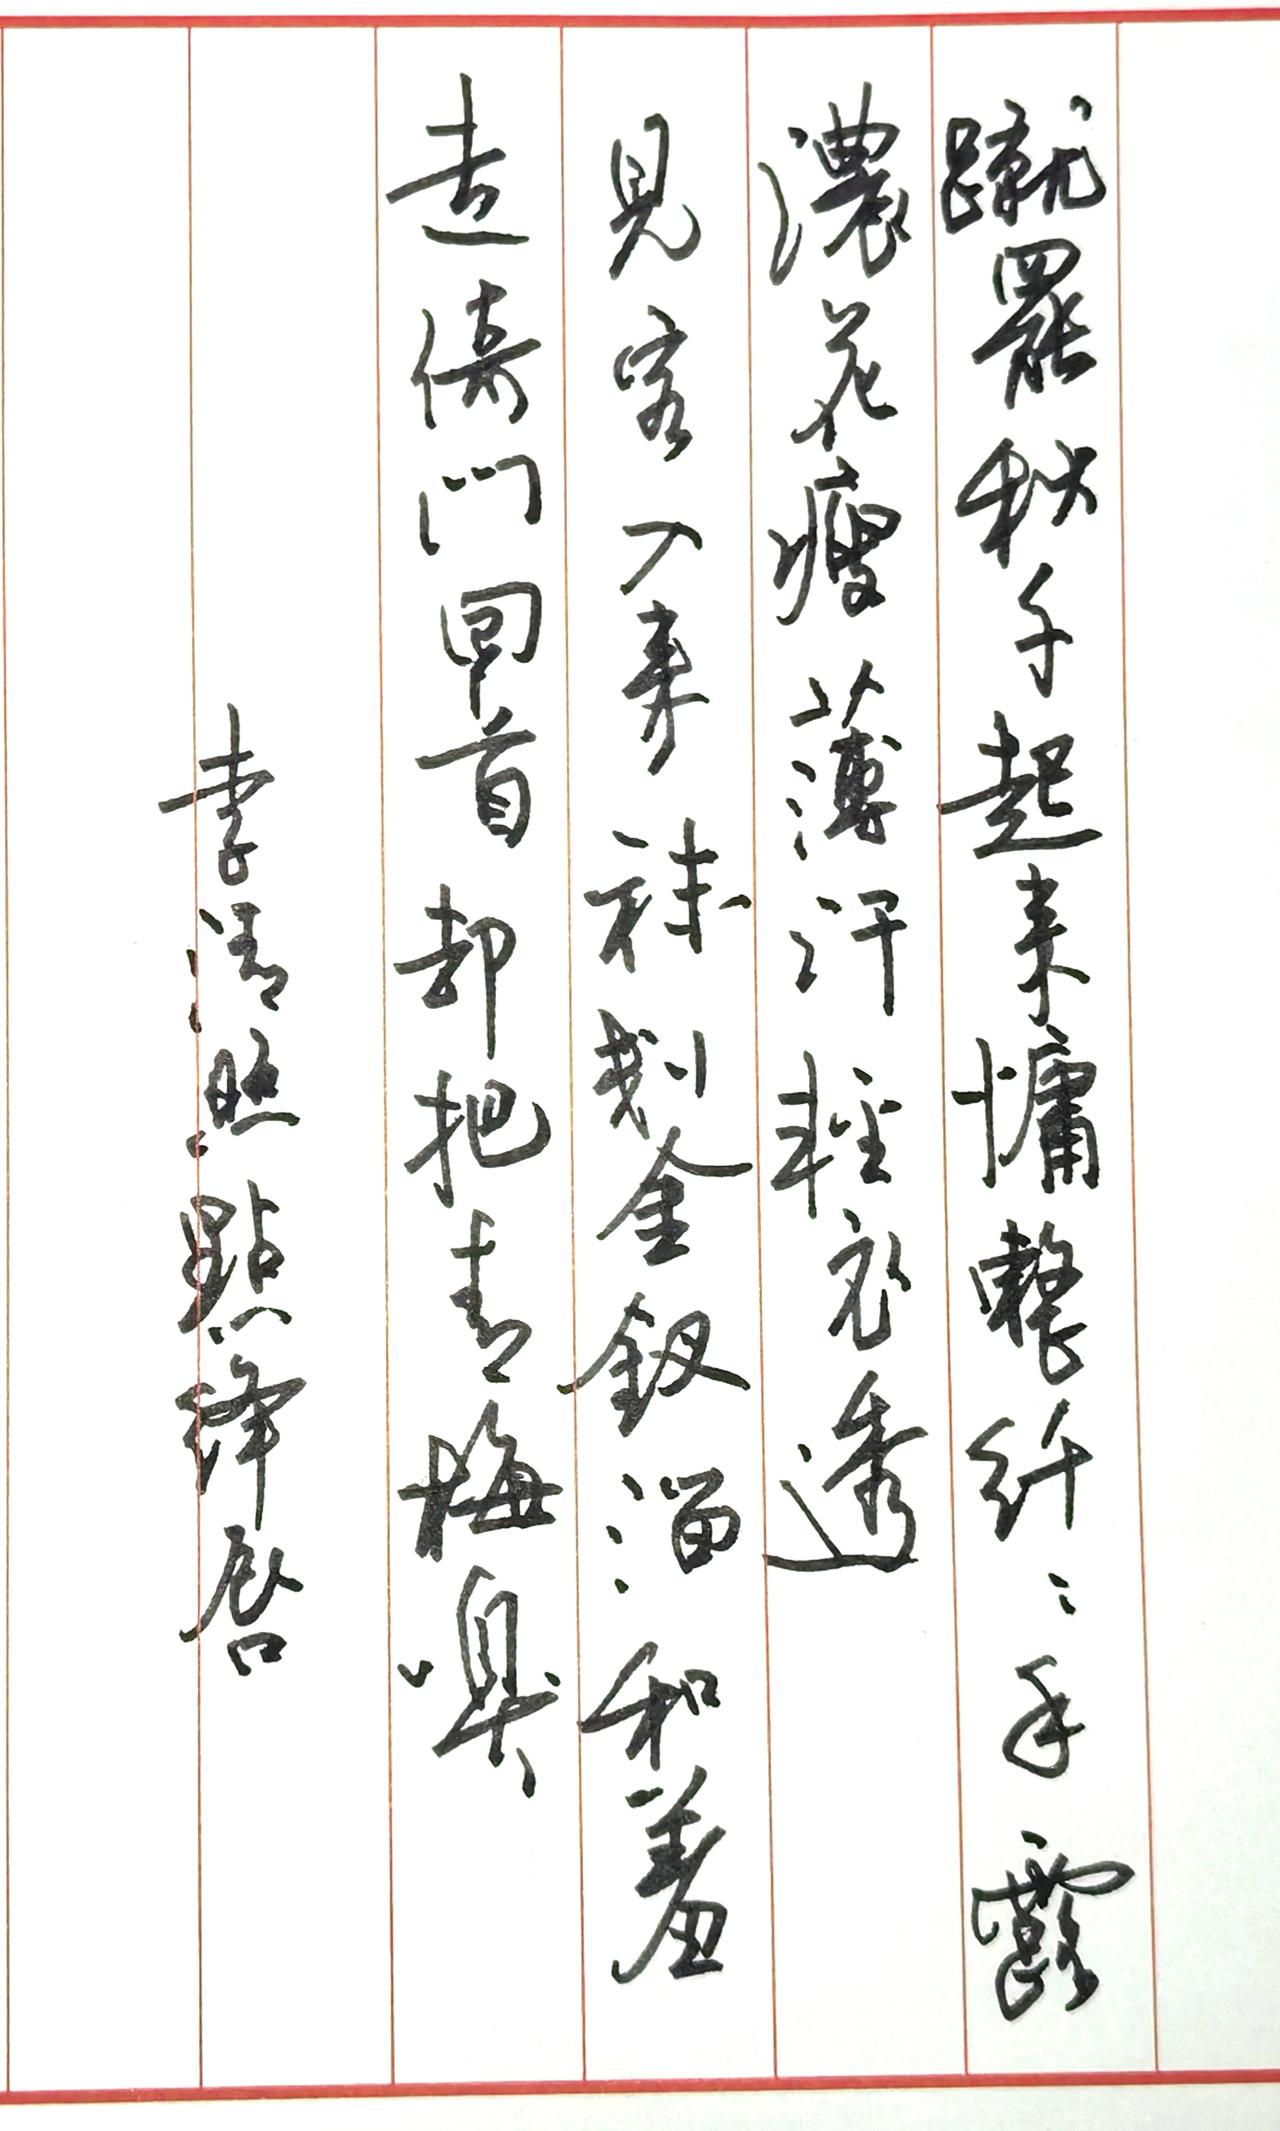 蹴罷秋千起来慵整纤〻手露
濃花瘦薄汗輕衣透
見客入来袜剗金釵溜和羞
走倚門回首却把青梅嗅
李清照點绛唇